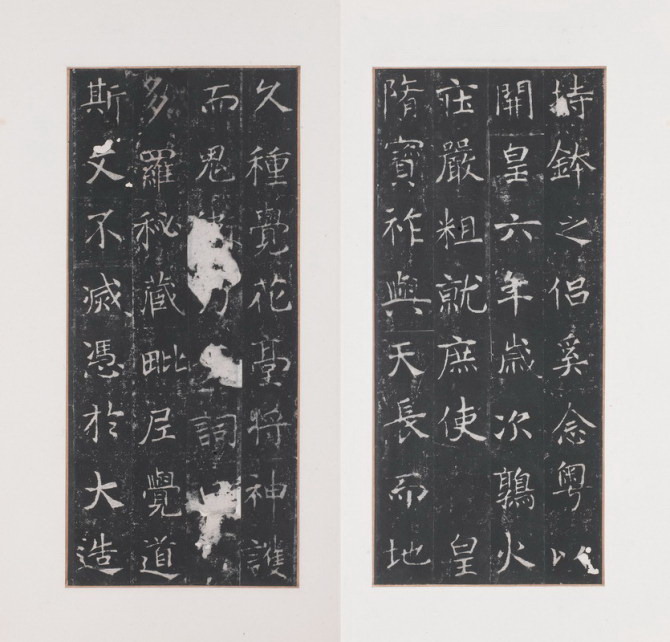 持鉢之侶奚念粤以
開皇六年歲次鶉火
莊嚴粗就庶使皇
隋寶祚與天長而地
久種覺花臺將神護
而鬼 力 詞
多羅秘藏毗尼覺道
斯文不滅憑於大造